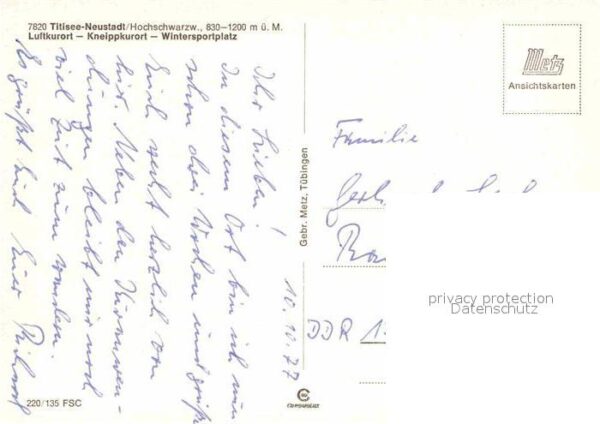 7820 Titisee-Neustadt/Hochschwarzw., 830–1200 m ü. M.
Luftkurort – Kneippkurort – Wintersportplatz
Metz
Ansichtskarten
10.10.77
Ihr Lieben!
In diesem Ort bin ich nun
schon drei Wochen und grüße
Euch recht herzlich von
hier. Neben den Kuranwen-
dungen bleibt mir noch
viel Zeit zum wandern.
Es grüßt Euch Euer
Familie
DDR 1
Gebr. Metz, Tübingen
220/135 FSC
privacy protection
Datenschutz